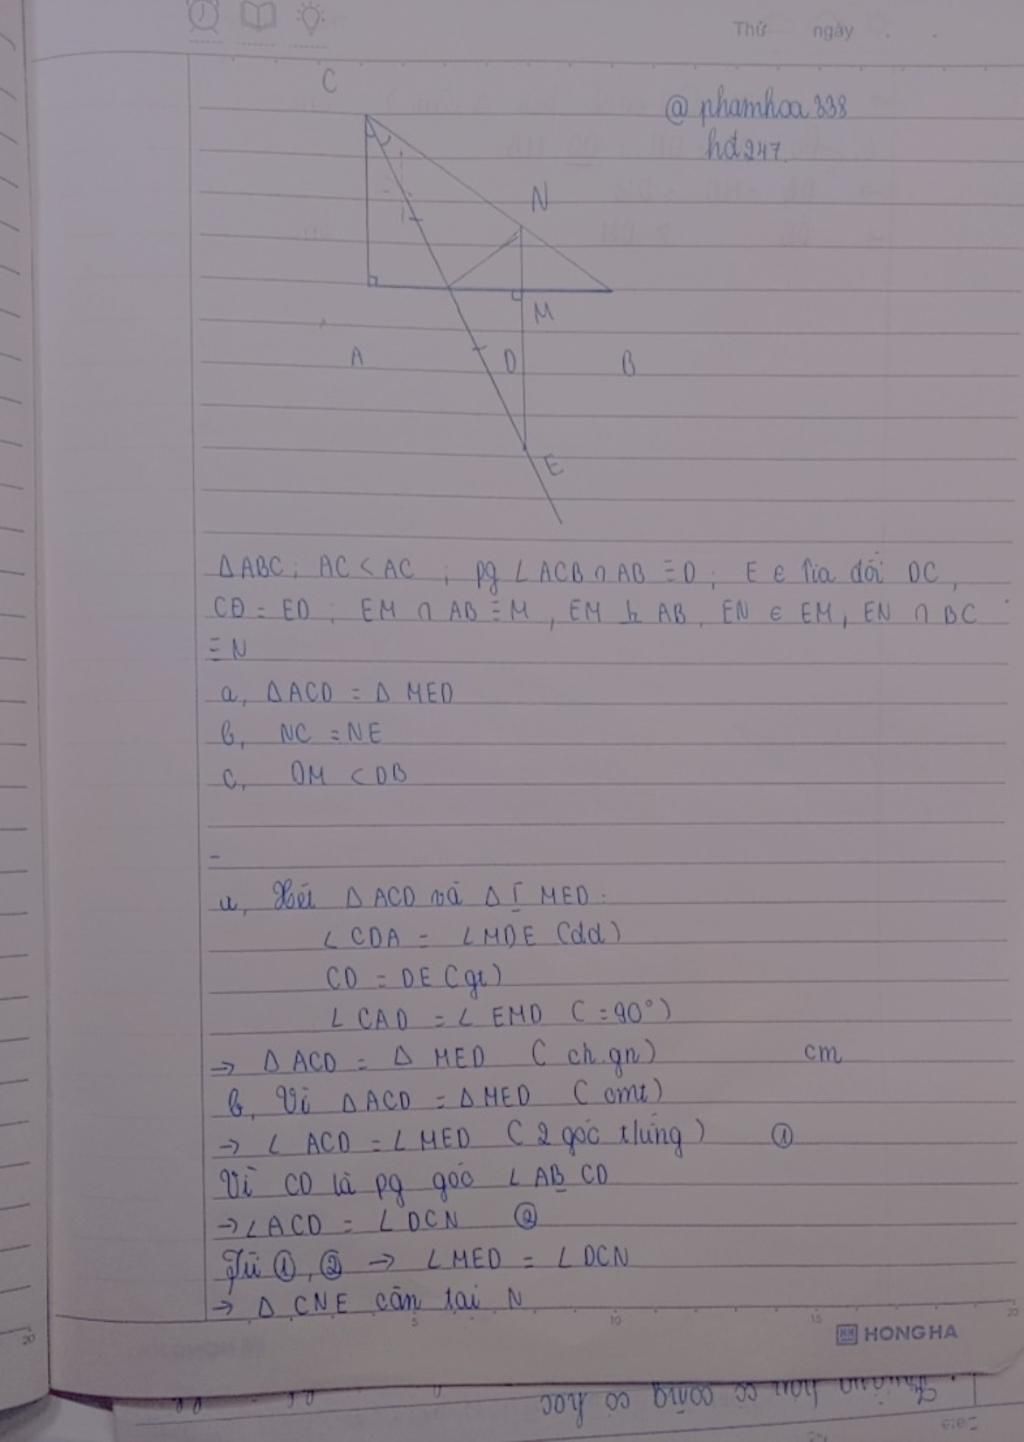 Thứ ngày . .
C
@ phamhoa 338
hd247.
N
M
A
D
B
E
ΔABC ; AC < AC ; pg ∠ACB ∩ AB ≡ D ; E ∈ tia đối DC,
CD = ED ; EM ∩ AB ≡ M , EM ⊥ AB , EN ∈ EM , EN ∩ BC
≡ N
a, ΔACD = Δ MED
b, NC = NE
c, DM < DB
a, Xét Δ ACD và Δ MED :
∠ CDA = ∠MDE (dd)
CD = DE (gt)
∠ CAD = ∠ EMD ( = 90° )
→ Δ ACD = Δ MED ( ch.gn ) cm
b, Vì ΔACD = ΔMED ( cmt )
→ ∠ ACD = ∠ MED ( 2 góc t/ứng ) ①
Vì CD là pg góc ∠ AB CD
→ ∠ACD = ∠ DCN ②
Từ ①, ② → ∠ MED = ∠ DCN
→ Δ CNE cân tại N
5 10 15 20
20
HONG HA